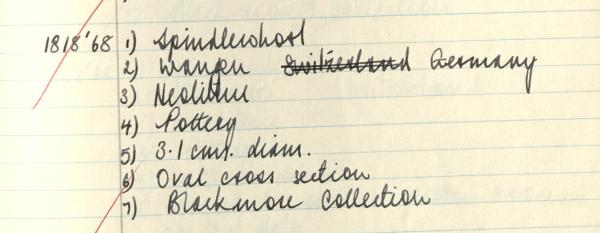 1818'68 1) Spindlewhorl
2) Wangen Switzerland Germany
3) Neolithic
4) Pottery
5) 3.1 cms. diam.
6) Oval cross section
7) Blackmore Collection